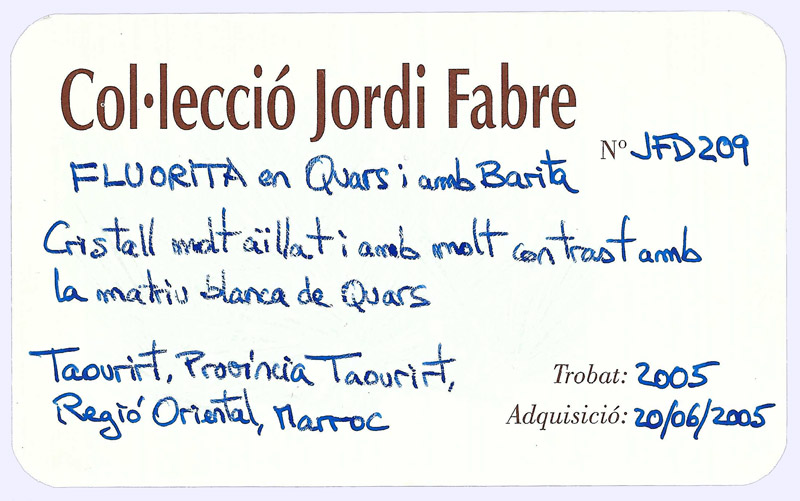 Col·lecció Jordi Fabre
Nº JFD209
FLUORITA en Quars i amb Barita
Cristall molt aïllat i amb molt contrast amb
la matriu blanca de Quars
Taourirt, Província Taourirt,
Regió Oriental, Marroc
Trobat: 2005
Adquisició: 20/06/2005